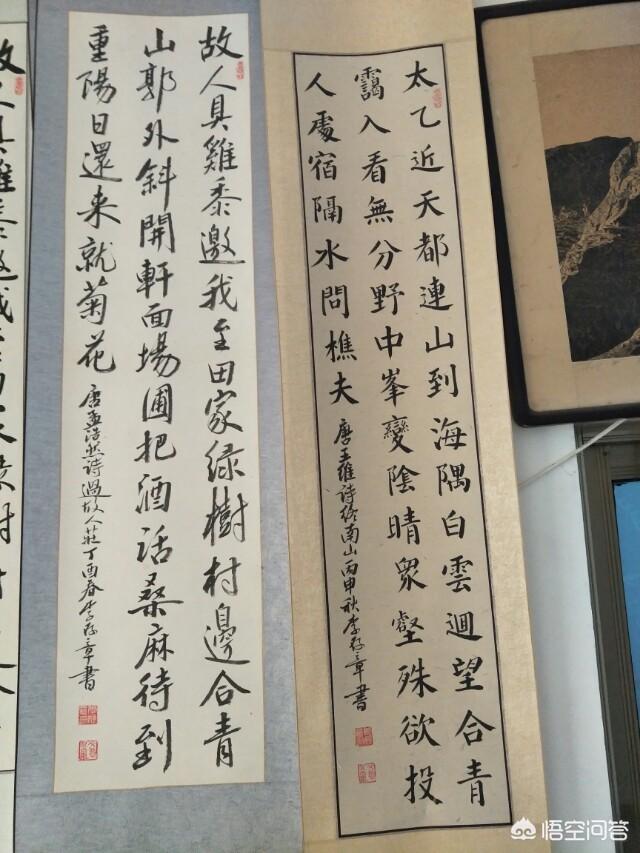 太乙近天都連山到海隅白雲迴望合青
靄入看無分野中峯變陰晴眾壑殊欲投
人處宿隔水問樵夫
唐王維詩終南山丙申秋李存章書
故人具雞黍邀我至田家綠樹村邊合青
山郭外斜開軒面場圃把酒話桑麻待到
重陽日還来就菊花
唐孟浩然詩過故人莊丁酉春李存章書
悟空问答